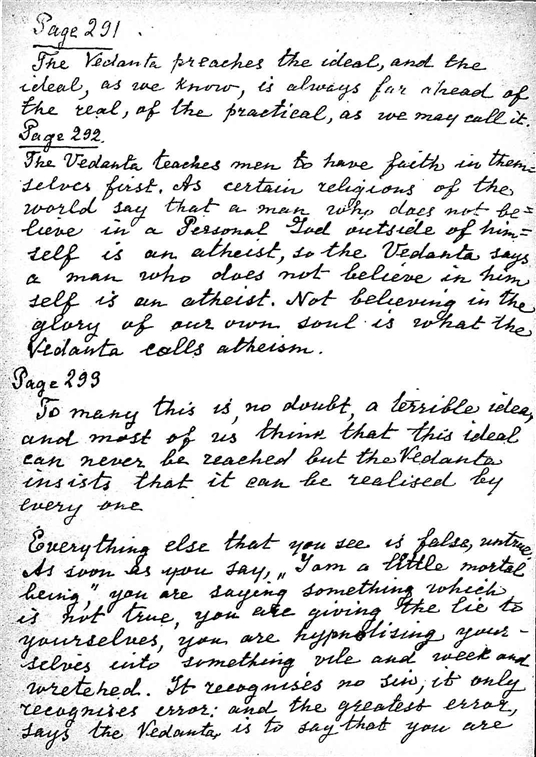 Page 291.
The Vedanta preaches the ideal, and the
ideal, as we know, is always far ahead of
the real, of the practical, as we may call it.
Page 292.
The Vedanta teaches men to have faith in them=
selves first. As certain religions of the
world say that a man who does not be=
lieve in a Personal God outside of him=
self is an atheist, so the Vedanta says
a man who does not believe in him
self is an atheist. Not believing in the
glory of our own soul is what the
Vedanta calls atheism.
Page 293
To many this is, no doubt, a terrible idea,
and most of us think that this ideal
can never be reached but the Vedanta
insists that it can be realised by
every one
Everything else that you see is false, untrue.
As soon as you say, „I am a little mortal
being," you are saying something which
is not true, you are giving the lie to
yourselves, you are hypnotising your-
selves into something vile and week and
wretched. It recognises no sin, it only
recognizes error: and the greatest error,
says the Vedanta, is to say that you are